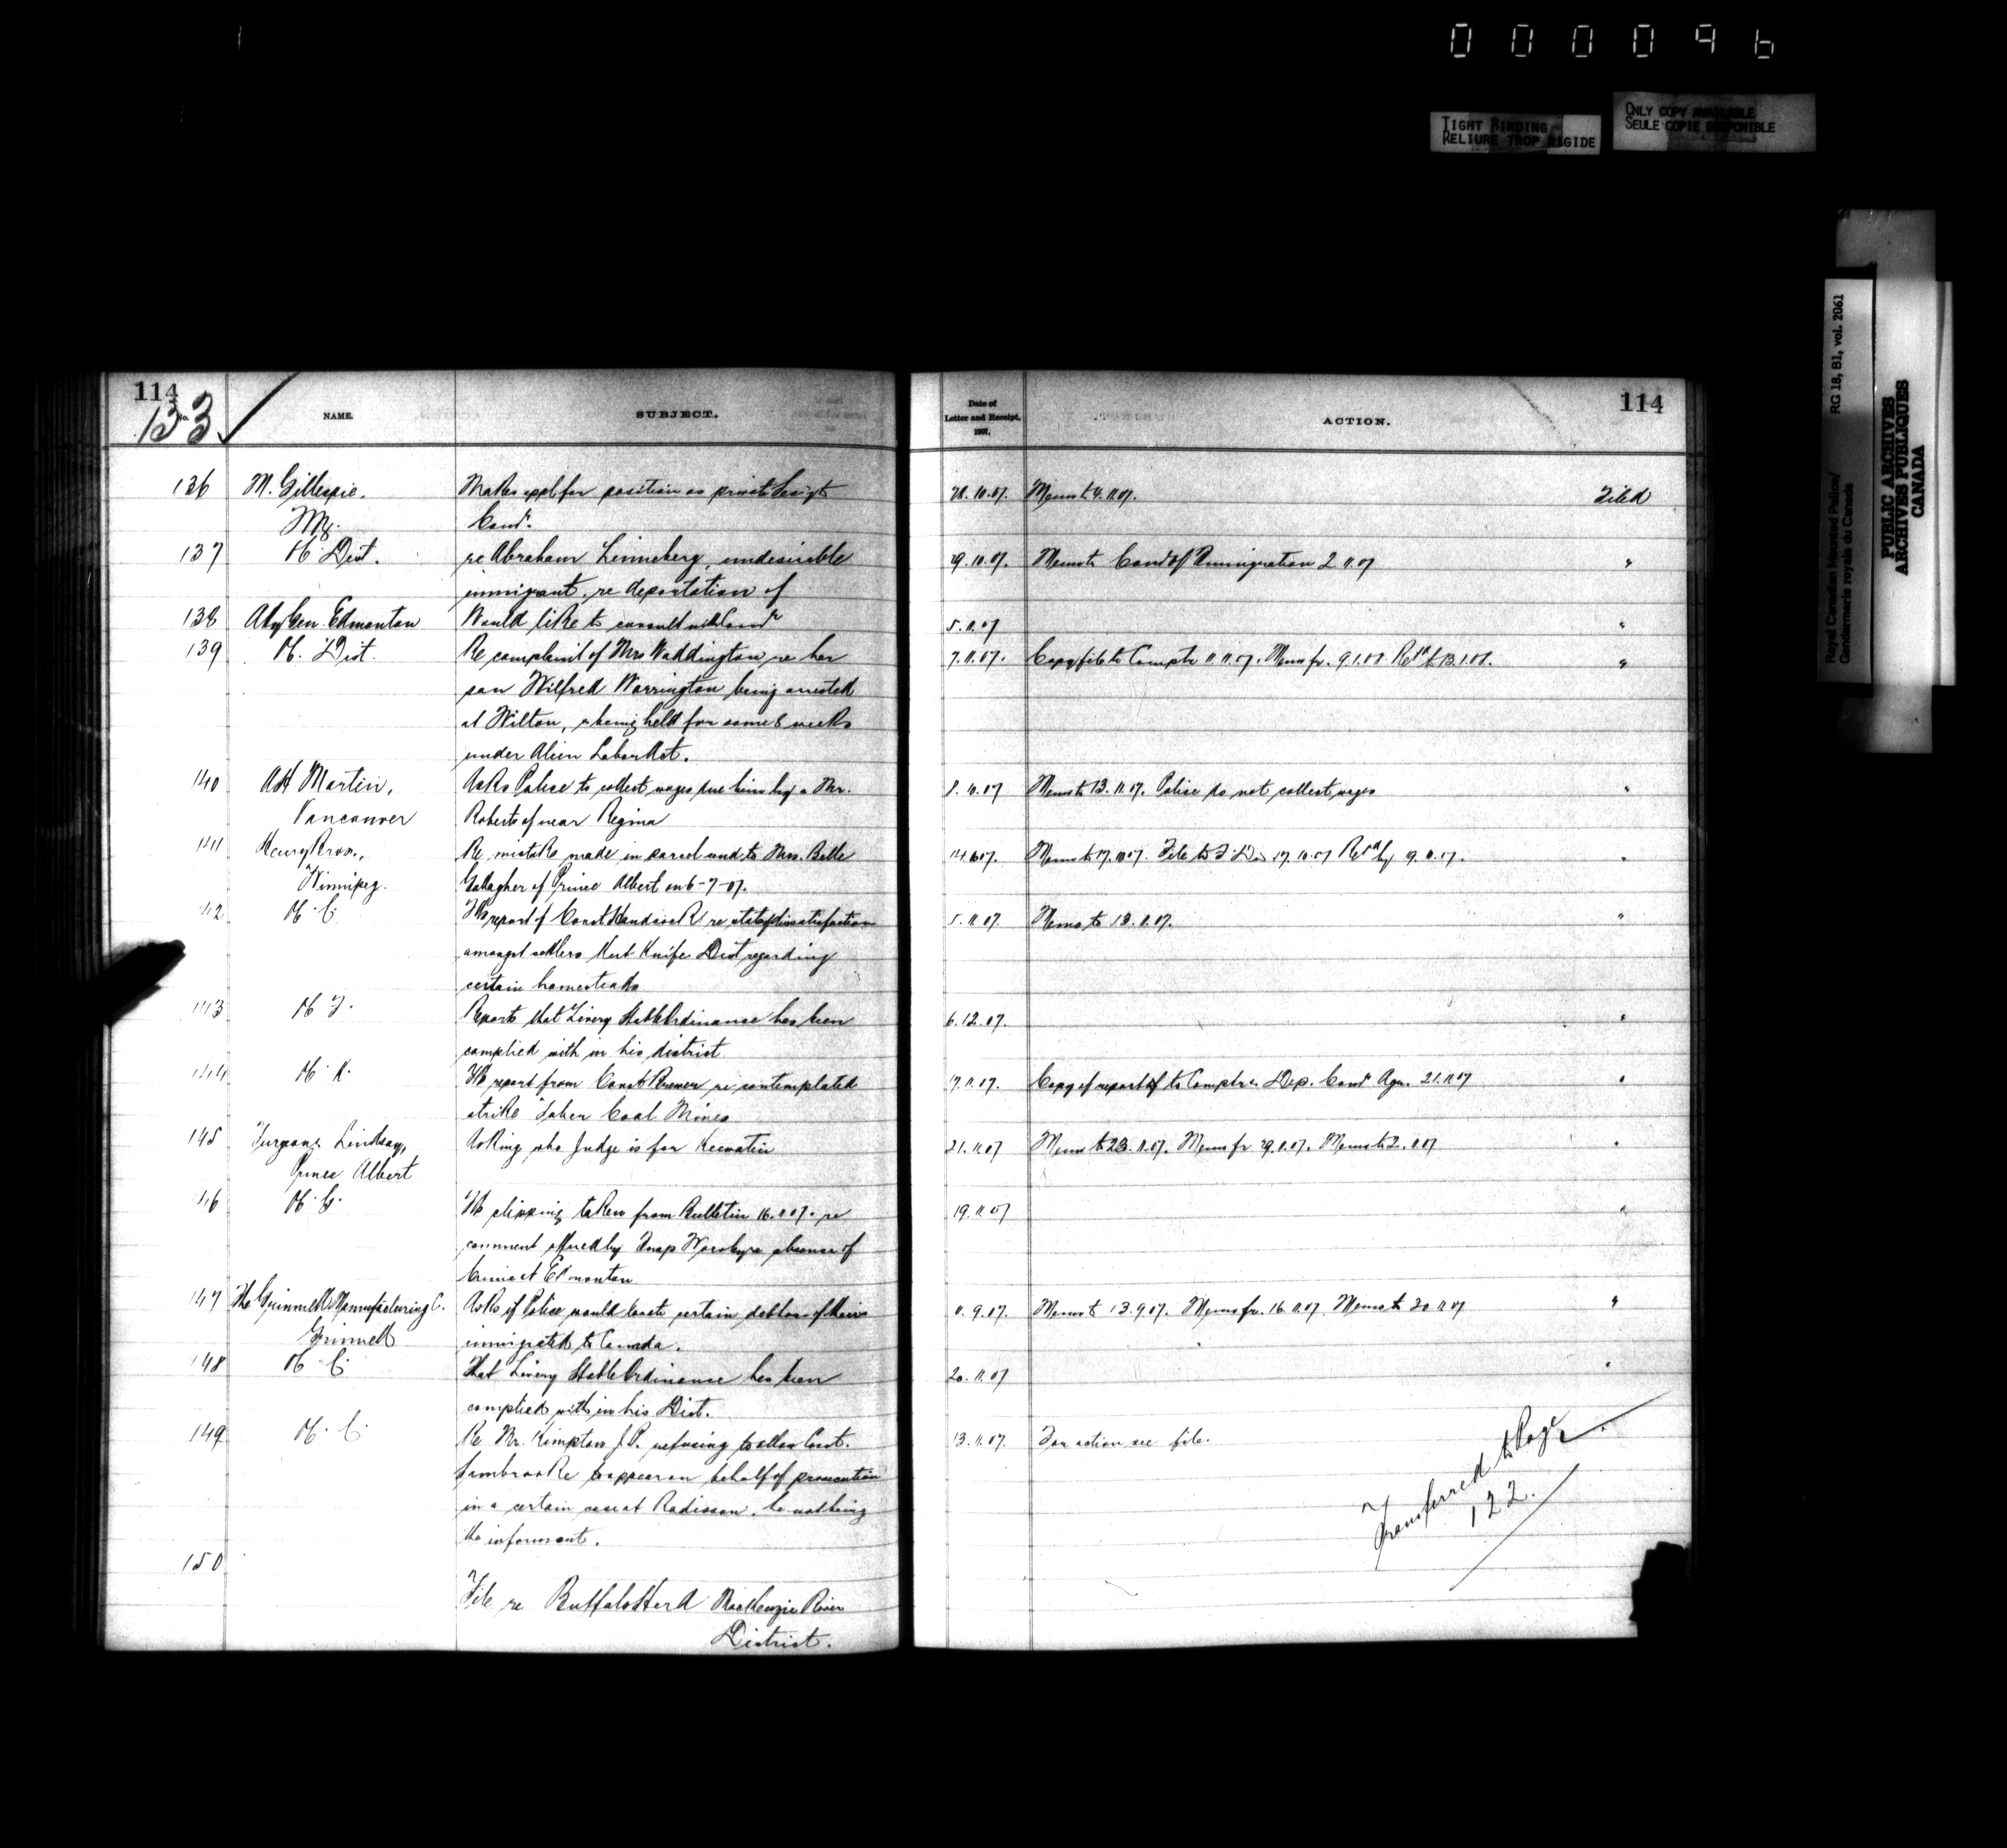 000096
TIGHT BINDING
RELIURE TROP RIGIDE
ONLY COPY AVAILABLE
SEULE COPIE DISPONIBLE
Royal Canadian Mounted Police/
Gendarmerie royale du Canada
RG 18, B1, vol. 2061
PUBLIC ARCHIVES
ARCHIVES PUBLIQUES
CANADA
114
133
No.
NAME.
SUBJECT.
136 M. Gillespie.
Makes appl for position as private
137 "K" Dist.
re Abraham Linneberg, undesirable
immigrant, re deportation of
138 Aty Gen. Edmonton
Would like to consult with Comr
139 Dist.
Re complaint of Mrs Waddington re her
son Wilfred Warrington being arrested
at Wilton, & being held for some 8 weeks
under Alien Labor Act.
140 Martin,
Vancouver
Asks Police to collect wages due him by a Mr.
Roberts of near Regina
141 Henry Bros.,
Winnipeg.
Re mistake made in parcel send to Mrs. Belle
Gallagher of Prince Albert on 6-7-07.
142 C.
report of Const re state of dissatisfaction
amongst settlers Cut Knife Dist regarding
certain homesteads
143
Reports that Livery Stable Ordinance has been
complied with in his district
144 K.
report from Const re contemplated
strike Taber Coal Mines
145 Turgeon & Lindsay,
Prince Albert
Asking who Judge is for Keewatin
146 G.
clipping taken from Bulletin 16.11.07. re
comment offered by Insp Worsley re absence of
Crime at Edmonton
147 The Grinnell Manufacturing C.
Grinnell
Asks if Police would locate certain debtors of theirs
immigrated to Canada.
148 C.
That Livery Stable Ordinance has been
complied with in his Dist.
149 C.
Re Mr. Kimpton J.P. refusing to allow Const.
to appear on behalf of prosecution
in a certain case at Radisson, he not being
the informant.
150
File re Buffalo Herd MacKenzie River
District.
Date of
Letter and Receipt,
1907.
ACTION.
114
28.10.07. Memo to 4.11.07. Filed
29.10.07. Memo to Comr of Immigration 2.11.07 "
5.11.07 "
7.11.07. Copy file to Comptr 11.11.07. Memo fr. 9.1.08. Retd to 13.1.08. "
8.11.07 Memo to 13.11.07. Police do not collect wages "
Memo to 17.10.07. File to 17.10.07 Retd by "
5.11.07. Memo to 13.11.07. "
6.12.07. "
17.11.07. Copy of report to Comptr & Dep. Comr Agr. 21.11.07 "
21.11.07 Memo to 23.11.07. Memo fr 29.11.07. "
19.11.07 "
Memo to 13.9.07. Memo fr. 16.11.07 Memo to 20.11.07 "
20.11.07 "
13.11.07. For action see file.
Transferred to Page
122.